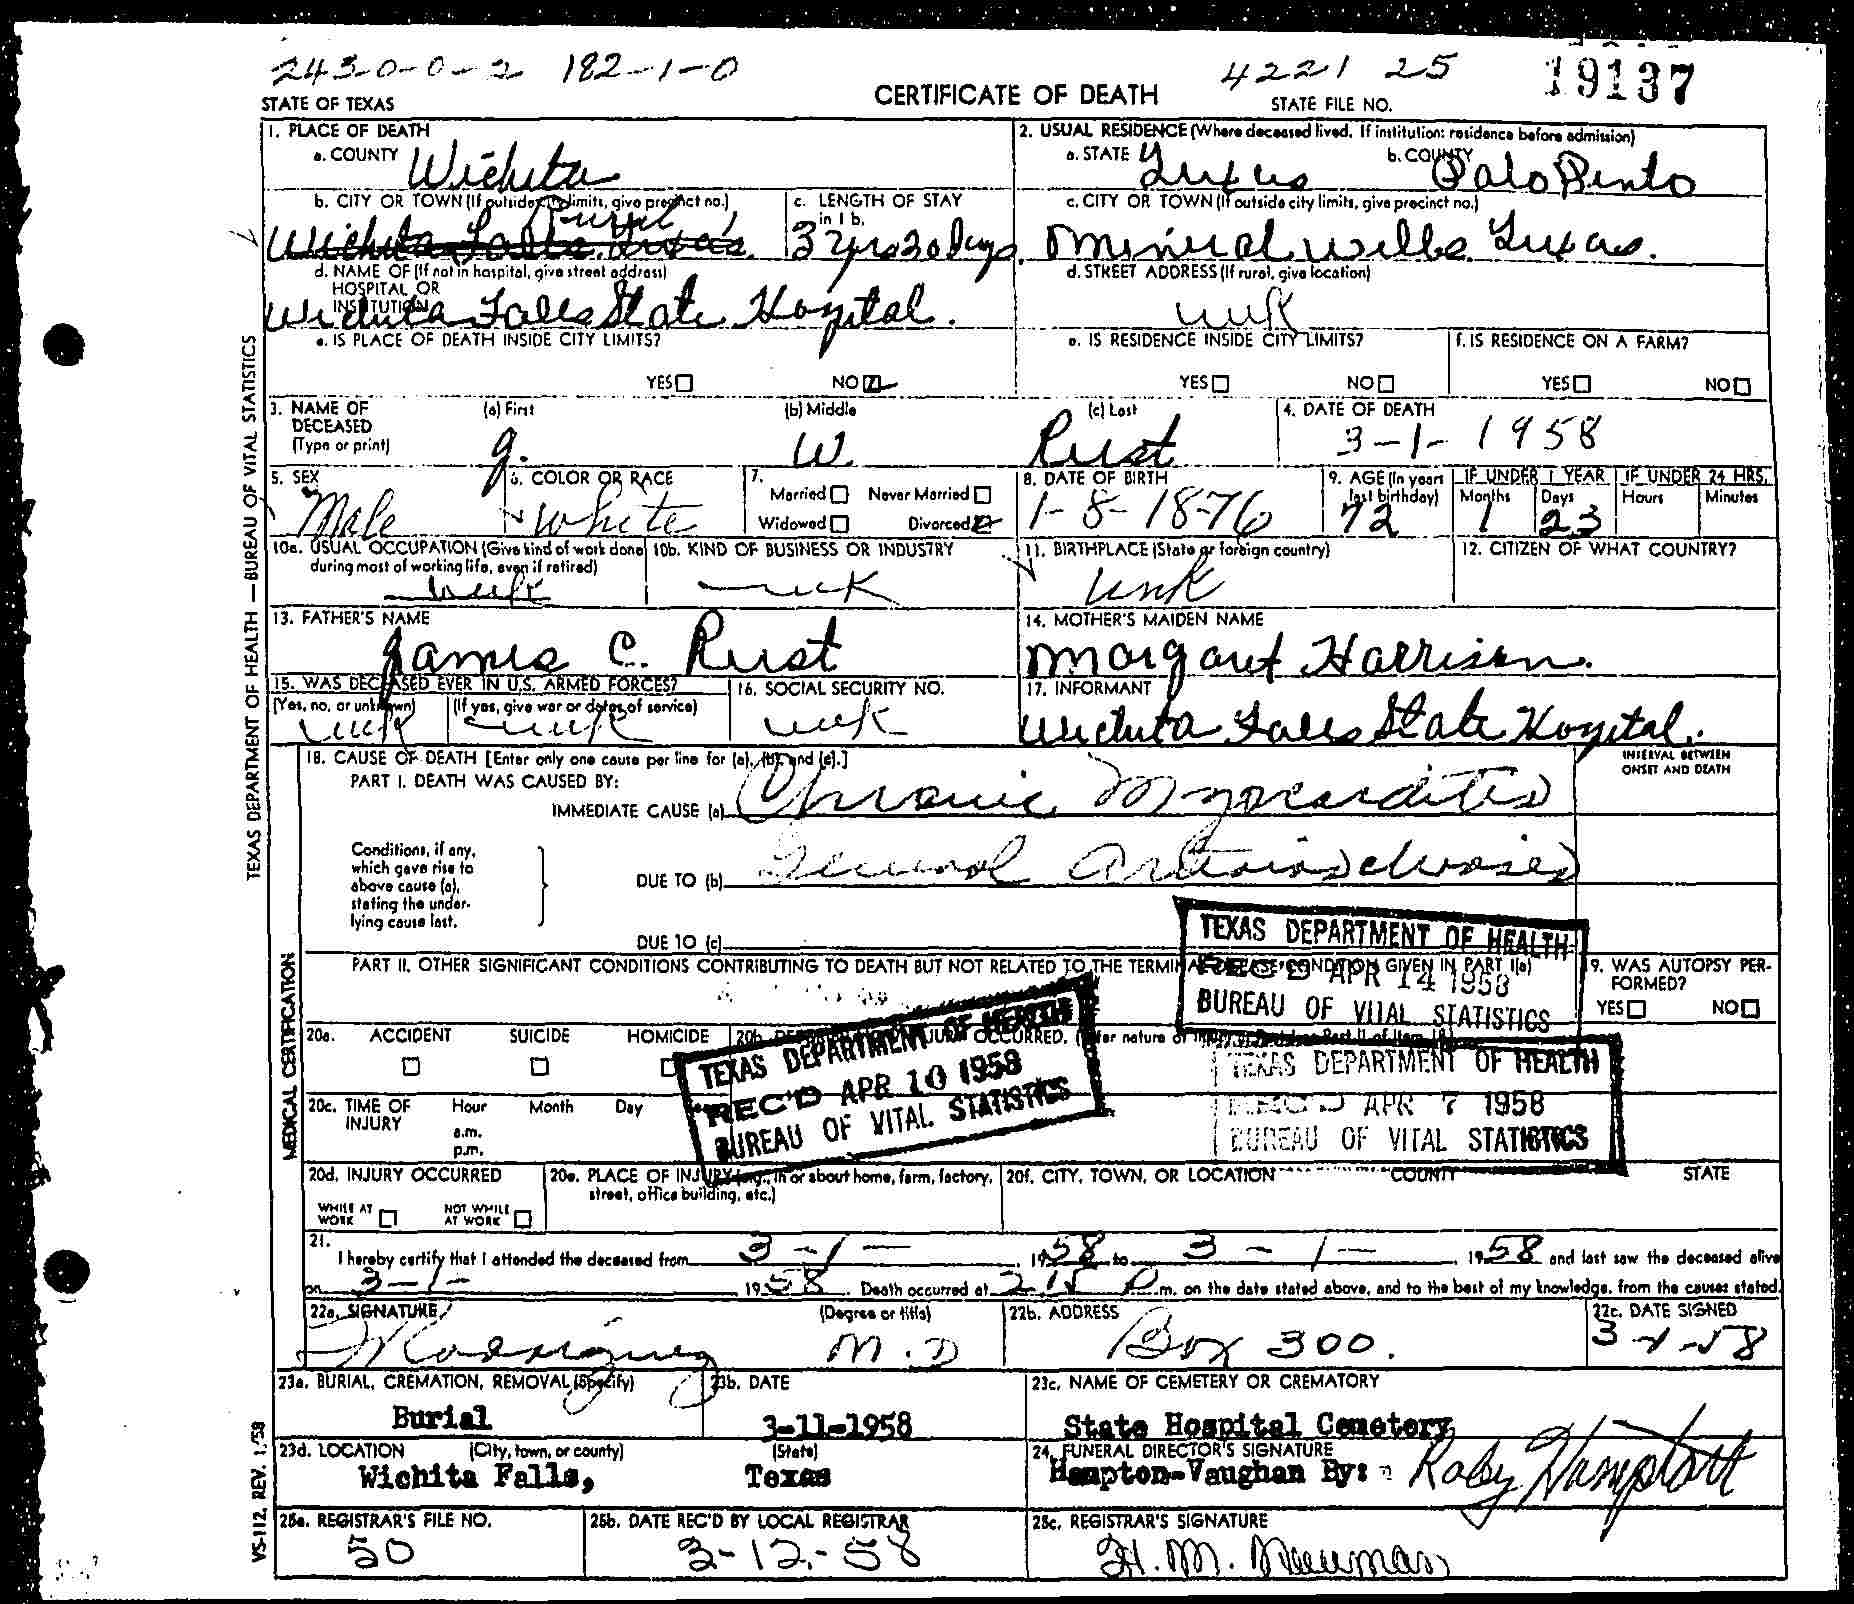 243-0-0-2 182-1-0 4221 25 19137
STATE OF TEXAS CERTIFICATE OF DEATH STATE FILE NO.
1. PLACE OF DEATH 2. USUAL RESIDENCE (Where deceased lived. If institution: residence before admission)
a. COUNTY Wichita a. STATE Texas b. COUNTY Palo Pinto
b. CITY OR TOWN (If outside city limits, give precinct no.) c. LENGTH OF STAY in 1 b. c. CITY OR TOWN (If outside city limits, give precinct no.)
Rural
Wichita Falls, Texas. 3 yrs 20 Days. Mineral Wells Texas.
d. NAME OF (If not in hospital, give street address) HOSPITAL OR INSTITUTION d. STREET ADDRESS (If rural, give location)
Wichita Falls State Hospital. unk
e. IS PLACE OF DEATH INSIDE CITY LIMITS? e. IS RESIDENCE INSIDE CITY LIMITS? f. IS RESIDENCE ON A FARM?
YES NO YES NO YES NO
3. NAME OF DECEASED (Type or print) (a) First (b) Middle (c) Last 4. DATE OF DEATH
G. W. Rust 3-1-1958
5. SEX 6. COLOR OR RACE 7. Married Never Married Widowed Divorced 8. DATE OF BIRTH 9. AGE (In years last birthday) IF UNDER 1 YEAR Months Days IF UNDER 24 HRS. Hours Minutes
Male White 1-8-1876 72 1 23
10a. USUAL OCCUPATION (Give kind of work done during most of working life, even if retired) 10b. KIND OF BUSINESS OR INDUSTRY 11. BIRTHPLACE (State or foreign country) 12. CITIZEN OF WHAT COUNTRY?
unk unk unk
13. FATHER'S NAME 14. MOTHER'S MAIDEN NAME
James C. Rust Margaret Harrison.
15. WAS DECEASED EVER IN U.S. ARMED FORCES? 16. SOCIAL SECURITY NO. 17. INFORMANT
(Yes, no, or unknown) (If yes, give war or dates of service)
unk unk unk Wichita Falls State Hospital.
18. CAUSE OF DEATH [Enter only one cause per line for (a), (b), and (c).] INTERVAL BETWEEN ONSET AND DEATH
PART I. DEATH WAS CAUSED BY:
IMMEDIATE CAUSE (a) Chronic Myocarditis
Conditions, if any, which gave rise to above cause (a), stating the underlying cause last.
DUE TO (b) General Arteriosclerosis
DUE TO (c)
TEXAS DEPARTMENT OF HEALTH
REC'D APR 14 1958
BUREAU OF VITAL STATISTICS
PART II. OTHER SIGNIFICANT CONDITIONS CONTRIBUTING TO DEATH BUT NOT RELATED TO THE TERMINAL DISEASE CONDITION GIVEN IN PART I(a) 19. WAS AUTOPSY PERFORMED?
YES NO
20a. ACCIDENT SUICIDE HOMICIDE 20b. DESCRIBE HOW INJURY OCCURRED. (Enter nature of injury in Part I or Part II of Item 18.)
TEXAS DEPARTMENT OF HEALTH
REC'D APR 10 1958
BUREAU OF VITAL STATISTICS
TEXAS DEPARTMENT OF HEALTH
REC'D APR 7 1958
BUREAU OF VITAL STATISTICS
20c. TIME OF INJURY Hour Month Day
a.m.
p.m.
20d. INJURY OCCURRED 20e. PLACE OF INJURY (e.g., in or about home, farm, factory, street, office building, etc.) 20f. CITY, TOWN, OR LOCATION COUNTY STATE
WHILE AT WORK NOT WHILE AT WORK
21. I hereby certify that I attended the deceased from 3-1- 1958 to 3-1- 1958 and last saw the deceased alive
on 3-1- 1958. Death occurred at 2:15 P.m. on the date stated above, and to the best of my knowledge, from the causes stated.
22a. SIGNATURE (Degree or title) 22b. ADDRESS 22c. DATE SIGNED
M.D Box 300. 3-1-58
23a. BURIAL, CREMATION, REMOVAL (Specify) 23b. DATE 23c. NAME OF CEMETERY OR CREMATORY
Burial 3-11-1958 State Hospital Cemetery
23d. LOCATION (City, town, or county) (State) 24. FUNERAL DIRECTOR'S SIGNATURE
Wichita Falls, Texas Hampton-Vaughan By:
25a. REGISTRAR'S FILE NO. 25b. DATE REC'D BY LOCAL REGISTRAR 25c. REGISTRAR'S SIGNATURE
50 3-12-58 H. M. Newman
TEXAS DEPARTMENT OF HEALTH — BUREAU OF VITAL STATISTICS
MEDICAL CERTIFICATION
VS-112. REV. 1/58